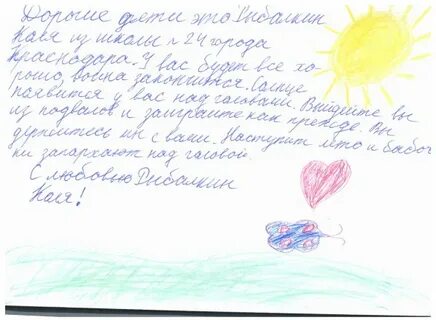 Дорогие дети это Рыбалкин
Коля из школы n 24 города
Краснодара. У вас будет все хо-
рошо, война закончится. Солнце
появится у вас над галовами. Выйдете вы
из подвалов и заиграите как прежде. Вы
держитесь мы с вами. Наступит лето и бабоч
ки запархают над галовой.
С любовью Рыбалкин
Коля!